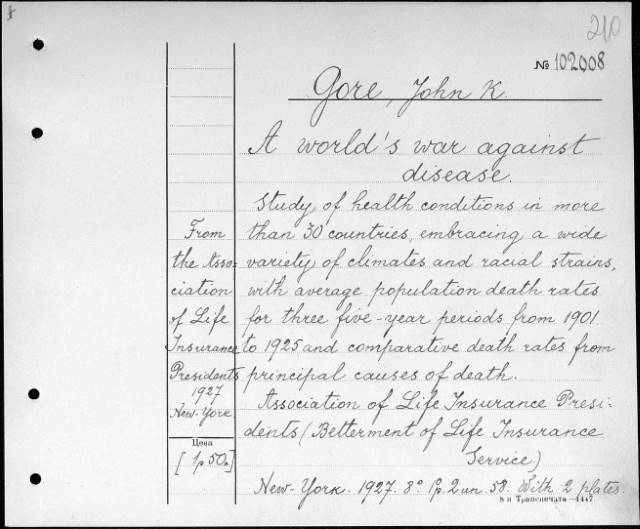 210
№ 102008
Gore, John K.
A world's war against
disease.
Study of health conditions in more
than 30 countries, embracing a wide
variety of climates and racial strains,
with average population death rates
for three five-year periods from 1901
to 1925 and comparative death rates from
principal causes of death.
Association of Life Insurance Presi-
dents (Betterment of Life Insurance
Service)
New-York. 1927. 8° 1p. 2 un. 58. With 2 plates.
From
the Asso-
ciation
of Life
Insurance
Presidents
1927
New-York
Цена
[1р 50к]
8 я Транспечать—1447.